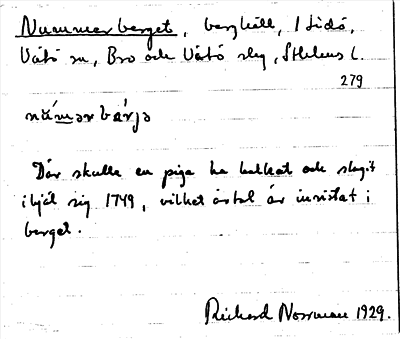 Nummerberget, berghäll, I Lidö,
Vätö sn, Bro och Vätö skg, Sthlms l.
279
númərbárjə
Där skulle en piga ha halkat och slagit
ihjäl sig 1749, vilket årtal är inristat i
berget.
Richard Norrman 1929.